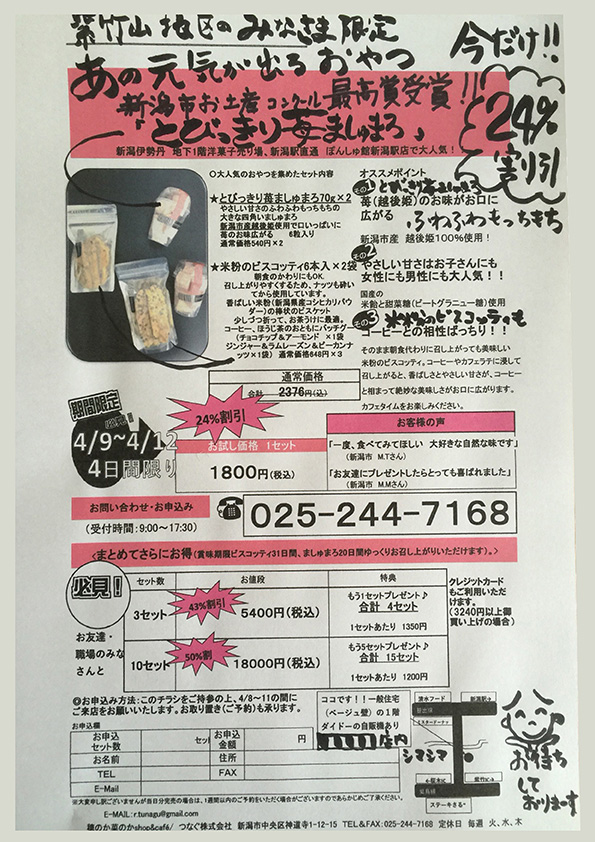 紫竹山地区のみなさま限定
あの元気が出るおやつ
今だけ!!
24%
割り引
新潟市お土産コンクール最高賞受賞!!
「とびっきり苺ましゅまろ」
新潟伊勢丹 地下1階洋菓子売り場、新潟駅直通 ぽんしゅ館新潟駅店で大人気!
〇大人気のおやつを集めたセット内容
★とびっきり苺ましゅまろ70g×2
やさしい甘さのふわふわもっちもちの
大きな四角いましゅまろ
新潟市産越後姫使用で口いっぱいに
苺のお味広がる 6粒入り
通常価格540円×2
★米粉のビスコッティ6本入×2袋
朝食のかわりにもOK.
召し上がりやすくするため、ナッツも砕い
てから使用しています。
香ばしい米粉(新潟県産コシヒカリパウ
ダー)の棒状のビスケット
少しづつ折って、お茶うけに最適。
コーヒー、ほうじ茶のおともにバッチグー
(チョコチップ&アーモンド ×1袋
ジンジャー&ラムレーズン&ピーカンナ
ッツ×1袋) 通常価格648円×3
オススメポイント
その1 とびきり苺ましゅまろ
苺(越後姫)のお味がお口に
広がる ふわふわもっちもち
新潟市産 越後姫100%使用!
その2
やさしい甘さはお子さんにも
女性にも男性にも大人気!!
国産の
米飴と甜菜糖(ビートグラニュー糖)使用
その3 米粉のビスコッティも
コーヒーとの相性ばっちり!!
そのまま朝食代わりに召し上がっても美味しい
米粉のビスコッティ。コーヒーやカフェラテに浸して
召し上がると、香ばしさとやさしい甘さが、コーヒー
と相まって絶妙な美味しさがお口に広がります。
カフェタイムをお楽しみください。
通常価格
合計 2376円(込)
期間限定
4/9~4/12
4日間限り
24%割引
お試し価格 1セット
1800円(税込)
お客様の声
「一度、食べてみてほしい 大好きな自然な味です」
(新潟市 M.Tさん)
「お友達にプレゼントしたらとっても喜ばれました」
(新潟市 M.Mさん)
お問い合わせ・お申込み
(受付時間:9:00~17:30)
025-244-7168
<まとめてさらにお得(賞味期限ビスコッティ31日間、ましゅまろ20日間ゆっくりお召し上がりいただけます)。>
必見!
お友達・
職場のみな
さんと
セット数 お値段 特典
3セット 43%割引 5400円(税込) もう1セットプレゼント♪
合計 4セット
1セットあたり 1350円
10セット 50%割 18000円(税込) もう5セットプレゼント♪
合計 15セット
1セットあたり 1200円
クレジットカード
もご利用いただ
けます。
(3240円以上御
買い上げの場合)
◎お申込み方法:このチラシをご持参の上、4/8~11の間に
ご来店をお願いいたします。お取り置き(ご予約)も承ります。
お申込欄
お申込
セット数 セット お申込
金額 円
お名前 住所
TEL FAX
E-Mail
ココです!!一般住宅
(ベージュ壁)の1階
ダイドーの自販機あり
店内
シマシマ
清水フード
新潟駅→
ミスタードーナツ
ステーキさる
お待ち
して
おります
※大変申し訳ございませんが当日分完売の場合は、1週間以内のご予約をいただく場合がございますのであらかじめご了承ください。
E-MAIL:r.tunagu@gmail.com
種のか菜のかshop&café/ つなぐ株式会社 新潟市中央区神道寺1-12-15 TEL&FAX:025-244-7168 定休日 毎週 火、水、木